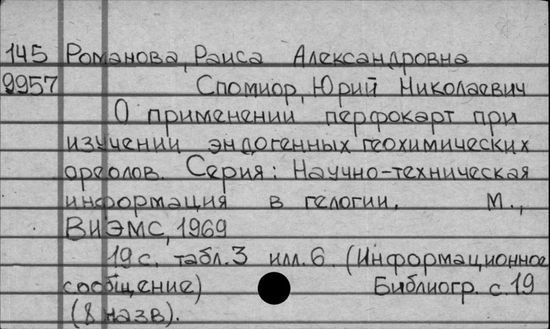 145 Романова, Раиса Александровна
9957 Спомиор, Юрий Николаевич
О применении перфокарт при
изучении эндогенных геохимических
ореолов. Серия: Научно-техническая
информация в гелогии. М.,
ВИЭМС, 1969
19 с. табл. 3 илл. 6. (Информационное
сообщение) Библиогр. с. 19
(8 назв).